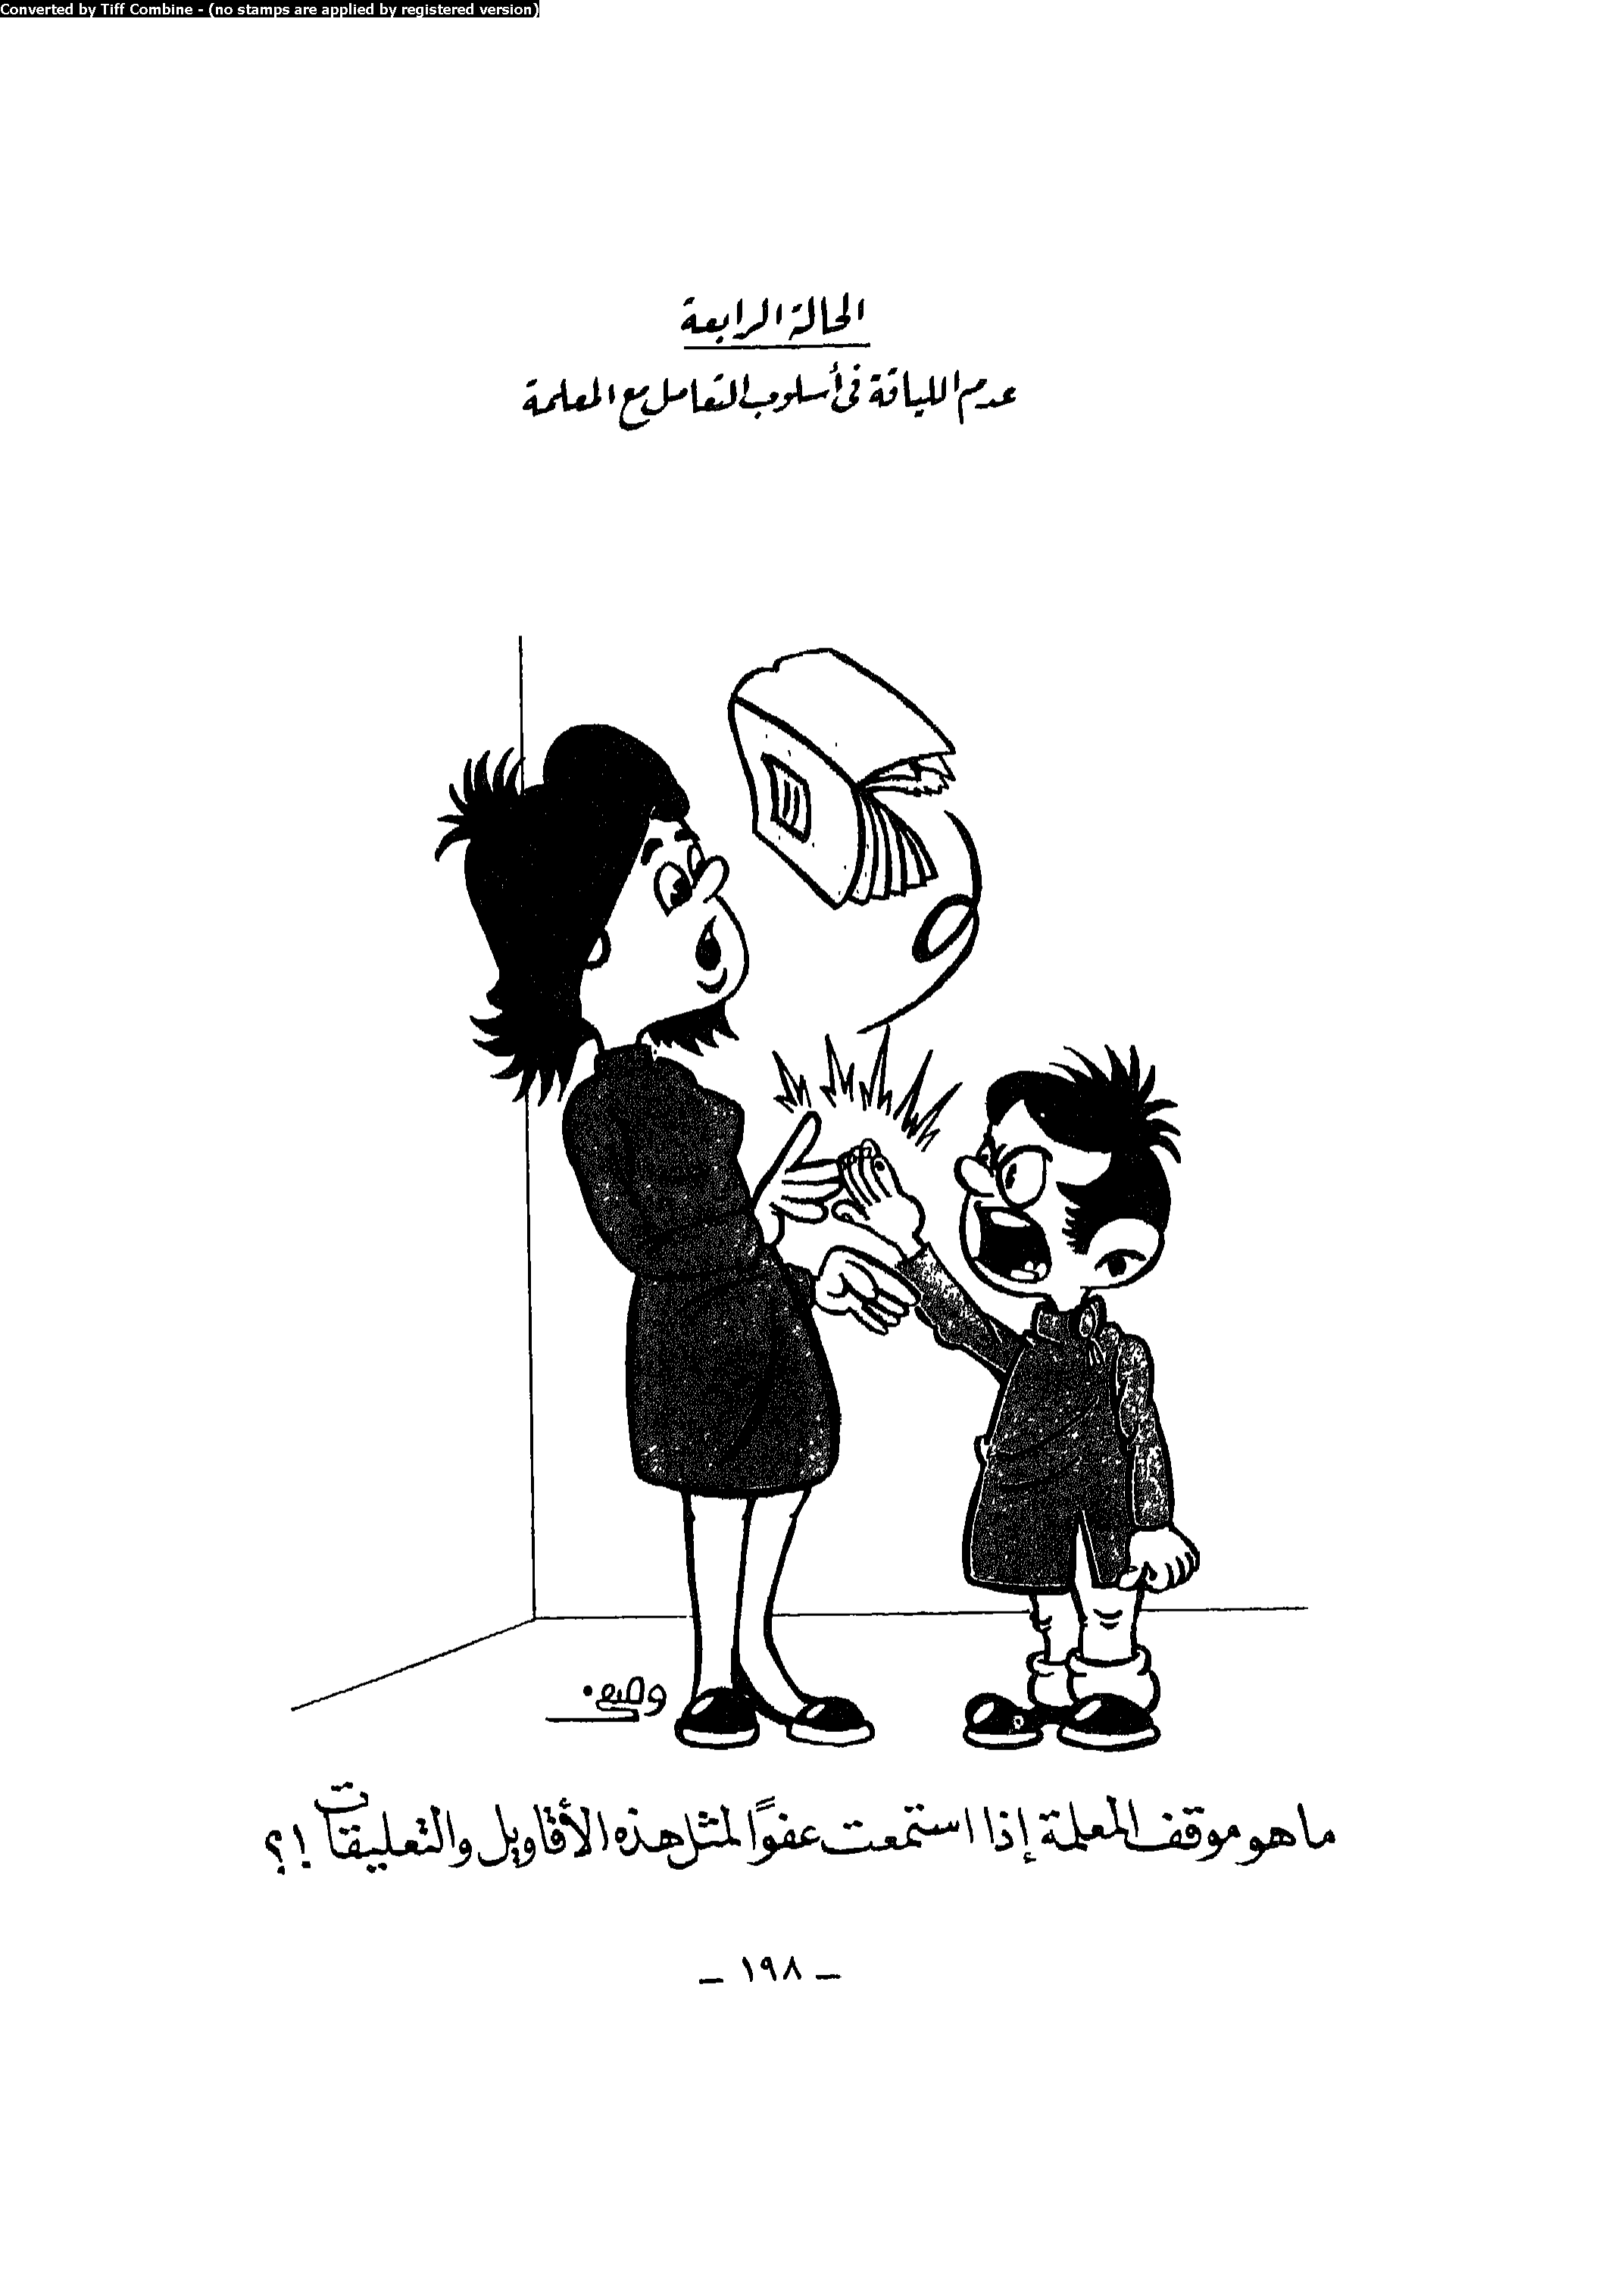 Converted by Tiff Combine - (no stamps are applied by registered version)
الحالة الرابعة
عدم اللياقة فى أسلوب التعامل مع المعلمة
ما هو موقف المعلمة إذا استمعت عفوًا لمثل هذه الأقاويل والتعليقات !؟
– ١٩٨ –